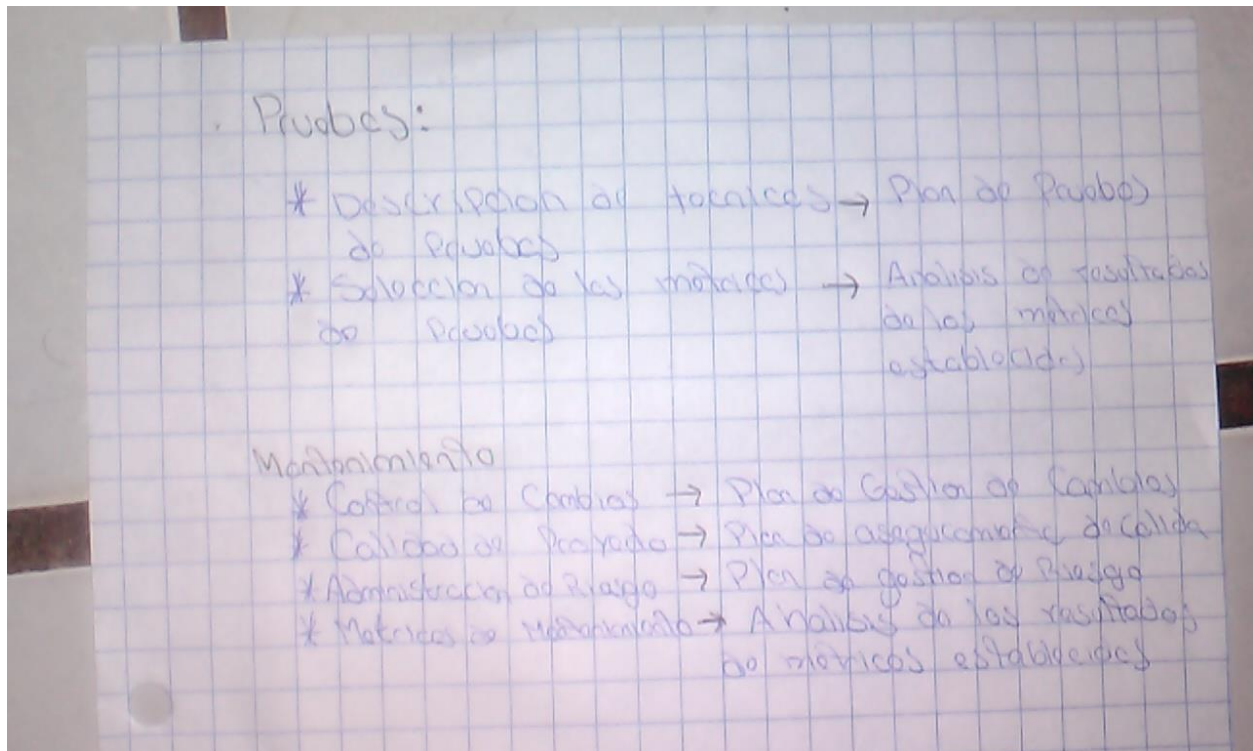 Pruebas:
* Descripcion de tecnicas → Plan de Pruebas
de Pruebas
* Seleccion de las metricas → Analisis de resultados
de Pruebas de las metricas
establecidas
Mantenimiento
* Control de Cambios → Plan de Gestion de Cambios
* Calidad de Proyecto → Plan de aseguramiento de calida
* Administracion de Riesgo → Plan de gestion de Riesgo
* Metricas de Mantenimiento → Analisis de los resultados
de métricas establecidas